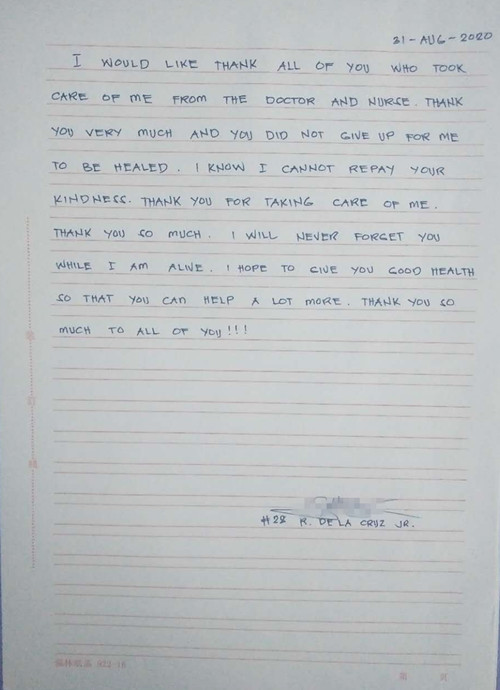 21-AUG-2020
I WOULD LIKE THANK ALL OF YOU WHO TOOK
CARE OF ME FROM THE DOCTOR AND NURSE. THANK
YOU VERY MUCH AND YOU DID NOT GIVE UP FOR ME
TO BE HEALED. I KNOW I CANNOT REPAY YOUR
KINDNESS. THANK YOU FOR TAKING CARE OF ME.
THANK YOU SO MUCH. I WILL NEVER FORGET YOU
WHILE I AM ALIVE. I HOPE TO GIVE YOU GOOD HEALTH
SO THAT YOU CAN HELP A LOT MORE. THANK YOU SO
MUCH TO ALL OF YOU!!!
#28 R. DE LA CRUZ JR.
第 页